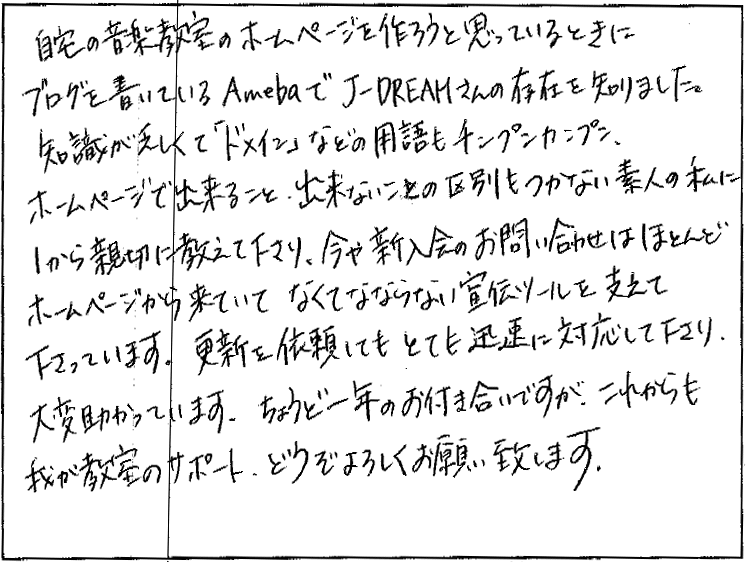 自宅の音楽教室のホームページを作ろうと思っているときに
ブログを書いているAmebaでJ-DREAMさんの存在を知りました。
知識が乏しくて「ドメイン」などの用語もチンプンカンプン、
ホームページで出来ること、出来ないことの区別もつかない素人の私に
1から親切に教えて下さり、今や新入会のお問い合わせはほとんど
ホームページから来ていて なくてなならない宣伝ツールを支えて
下さっています。更新を依頼してもとても迅速に対応して下さり、
大変助かっています。ちょうど一年のお付き合いですが、これからも
我が教室のサポート、どうぞよろしくお願い致します。